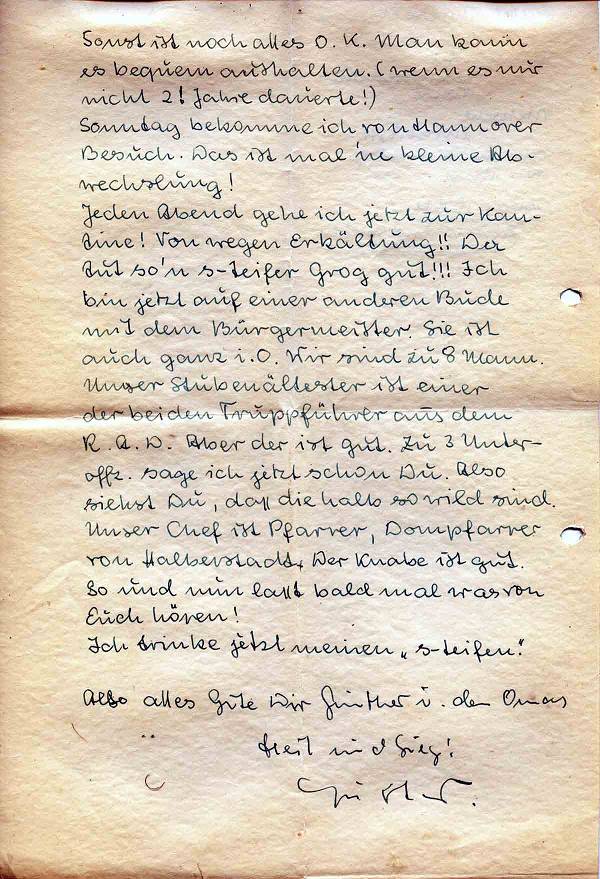 Sonst ist noch alles O.K. Man kann
es bequem aushalten. (wenn es nur
nicht 2! Jahre dauerte!)
Sonntag bekomme ich von Hannover
Besuch. Das ist mal 'ne kleine Ab-
wechslung!
Jeden Abend gehe ich jetzt zur Kan-
tine! Von wegen Erkältung!! Der
tut so'n s-teifer Grog gut!!! Ich
bin jetzt auf einer anderen Bude
mit dem Bürgermeister. Sie ist
auch ganz i.O. Wir sind zu 8 Mann.
Unser Stubenältester ist einer
der beiden Truppführer aus dem
R.A.D. Aber der ist gut. Zu 3 Unter-
offz. sage ich jetzt schon Du. Also
siehst Du, daß die halb so wild sind.
Unser Chef ist Pfarrer, Dompfarrer
von Halberstadt. Der Knabe ist gut.
So und nun laßt bald mal was von
Euch hören!
Ich trinke jetzt meinen „s-teifen".
Also alles Gute Dir Günther u. den Omas
Heil und Sieg!